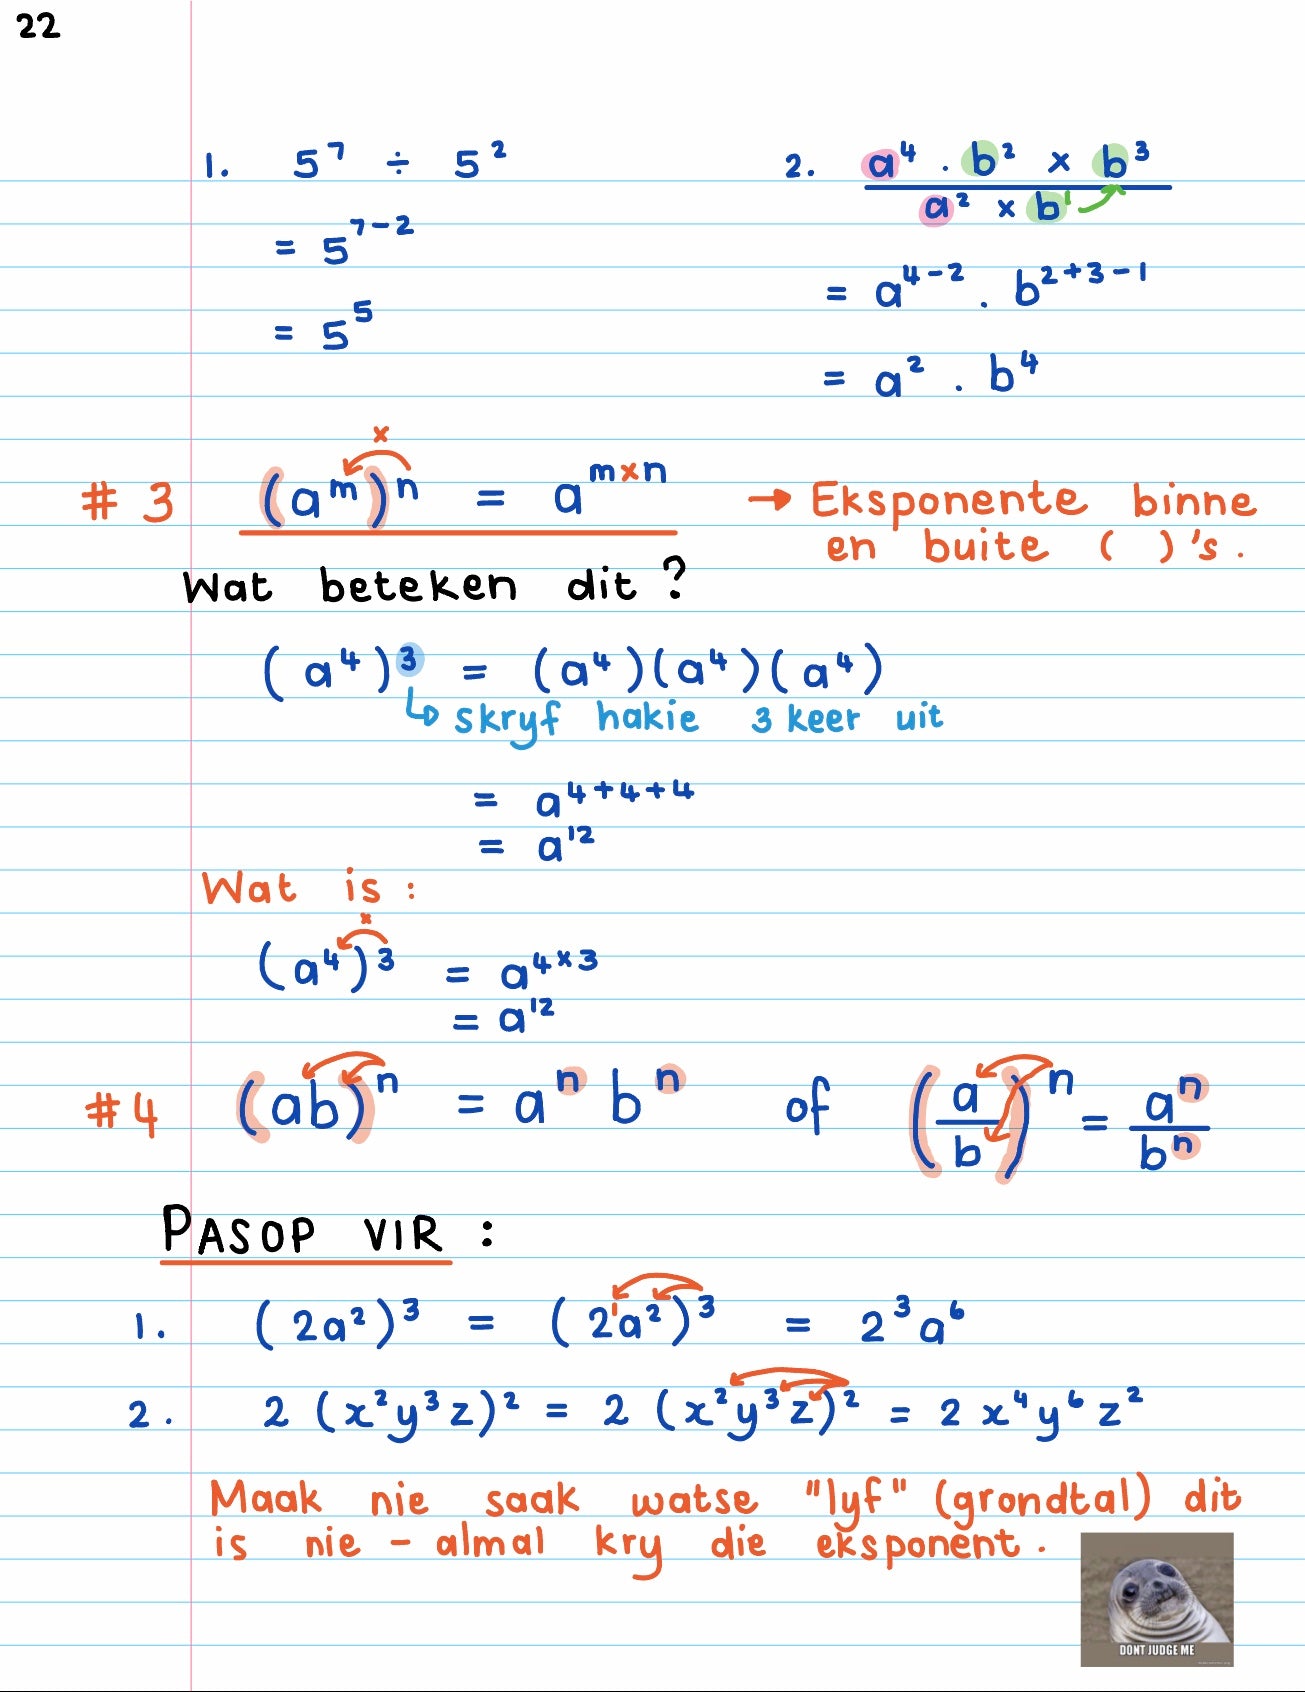 22
1. 5⁷ ÷ 5²
= 5⁷⁻²
= 5⁵
2. a⁴ . b² × b³
a² × b¹
= a⁴⁻² . b²⁺³⁻¹
= a² . b⁴
×
# 3 (aᵐ)ⁿ = aᵐˣⁿ → Eksponente binne
en buite ( )'s.
Wat beteken dit?
(a⁴)³ = (a⁴)(a⁴)(a⁴)
↳ skryf hakie 3 keer uit
= a⁴⁺⁴⁺⁴
= a¹²
Wat is:
×
(a⁴)³ = a⁴ˣ³
= a¹²
#4 (ab)ⁿ = aⁿ bⁿ of (a/b)ⁿ = aⁿ/bⁿ
PASOP VIR :
1. (2a²)³ = (2¹a²)³ = 2³a⁶
2. 2(x²y³z)² = 2(x²y³z)² = 2x⁴y⁶z²
Maak nie saak watse "lyf" (grondtal) dit
is nie - almal kry die eksponent.
DONT JUDGE ME